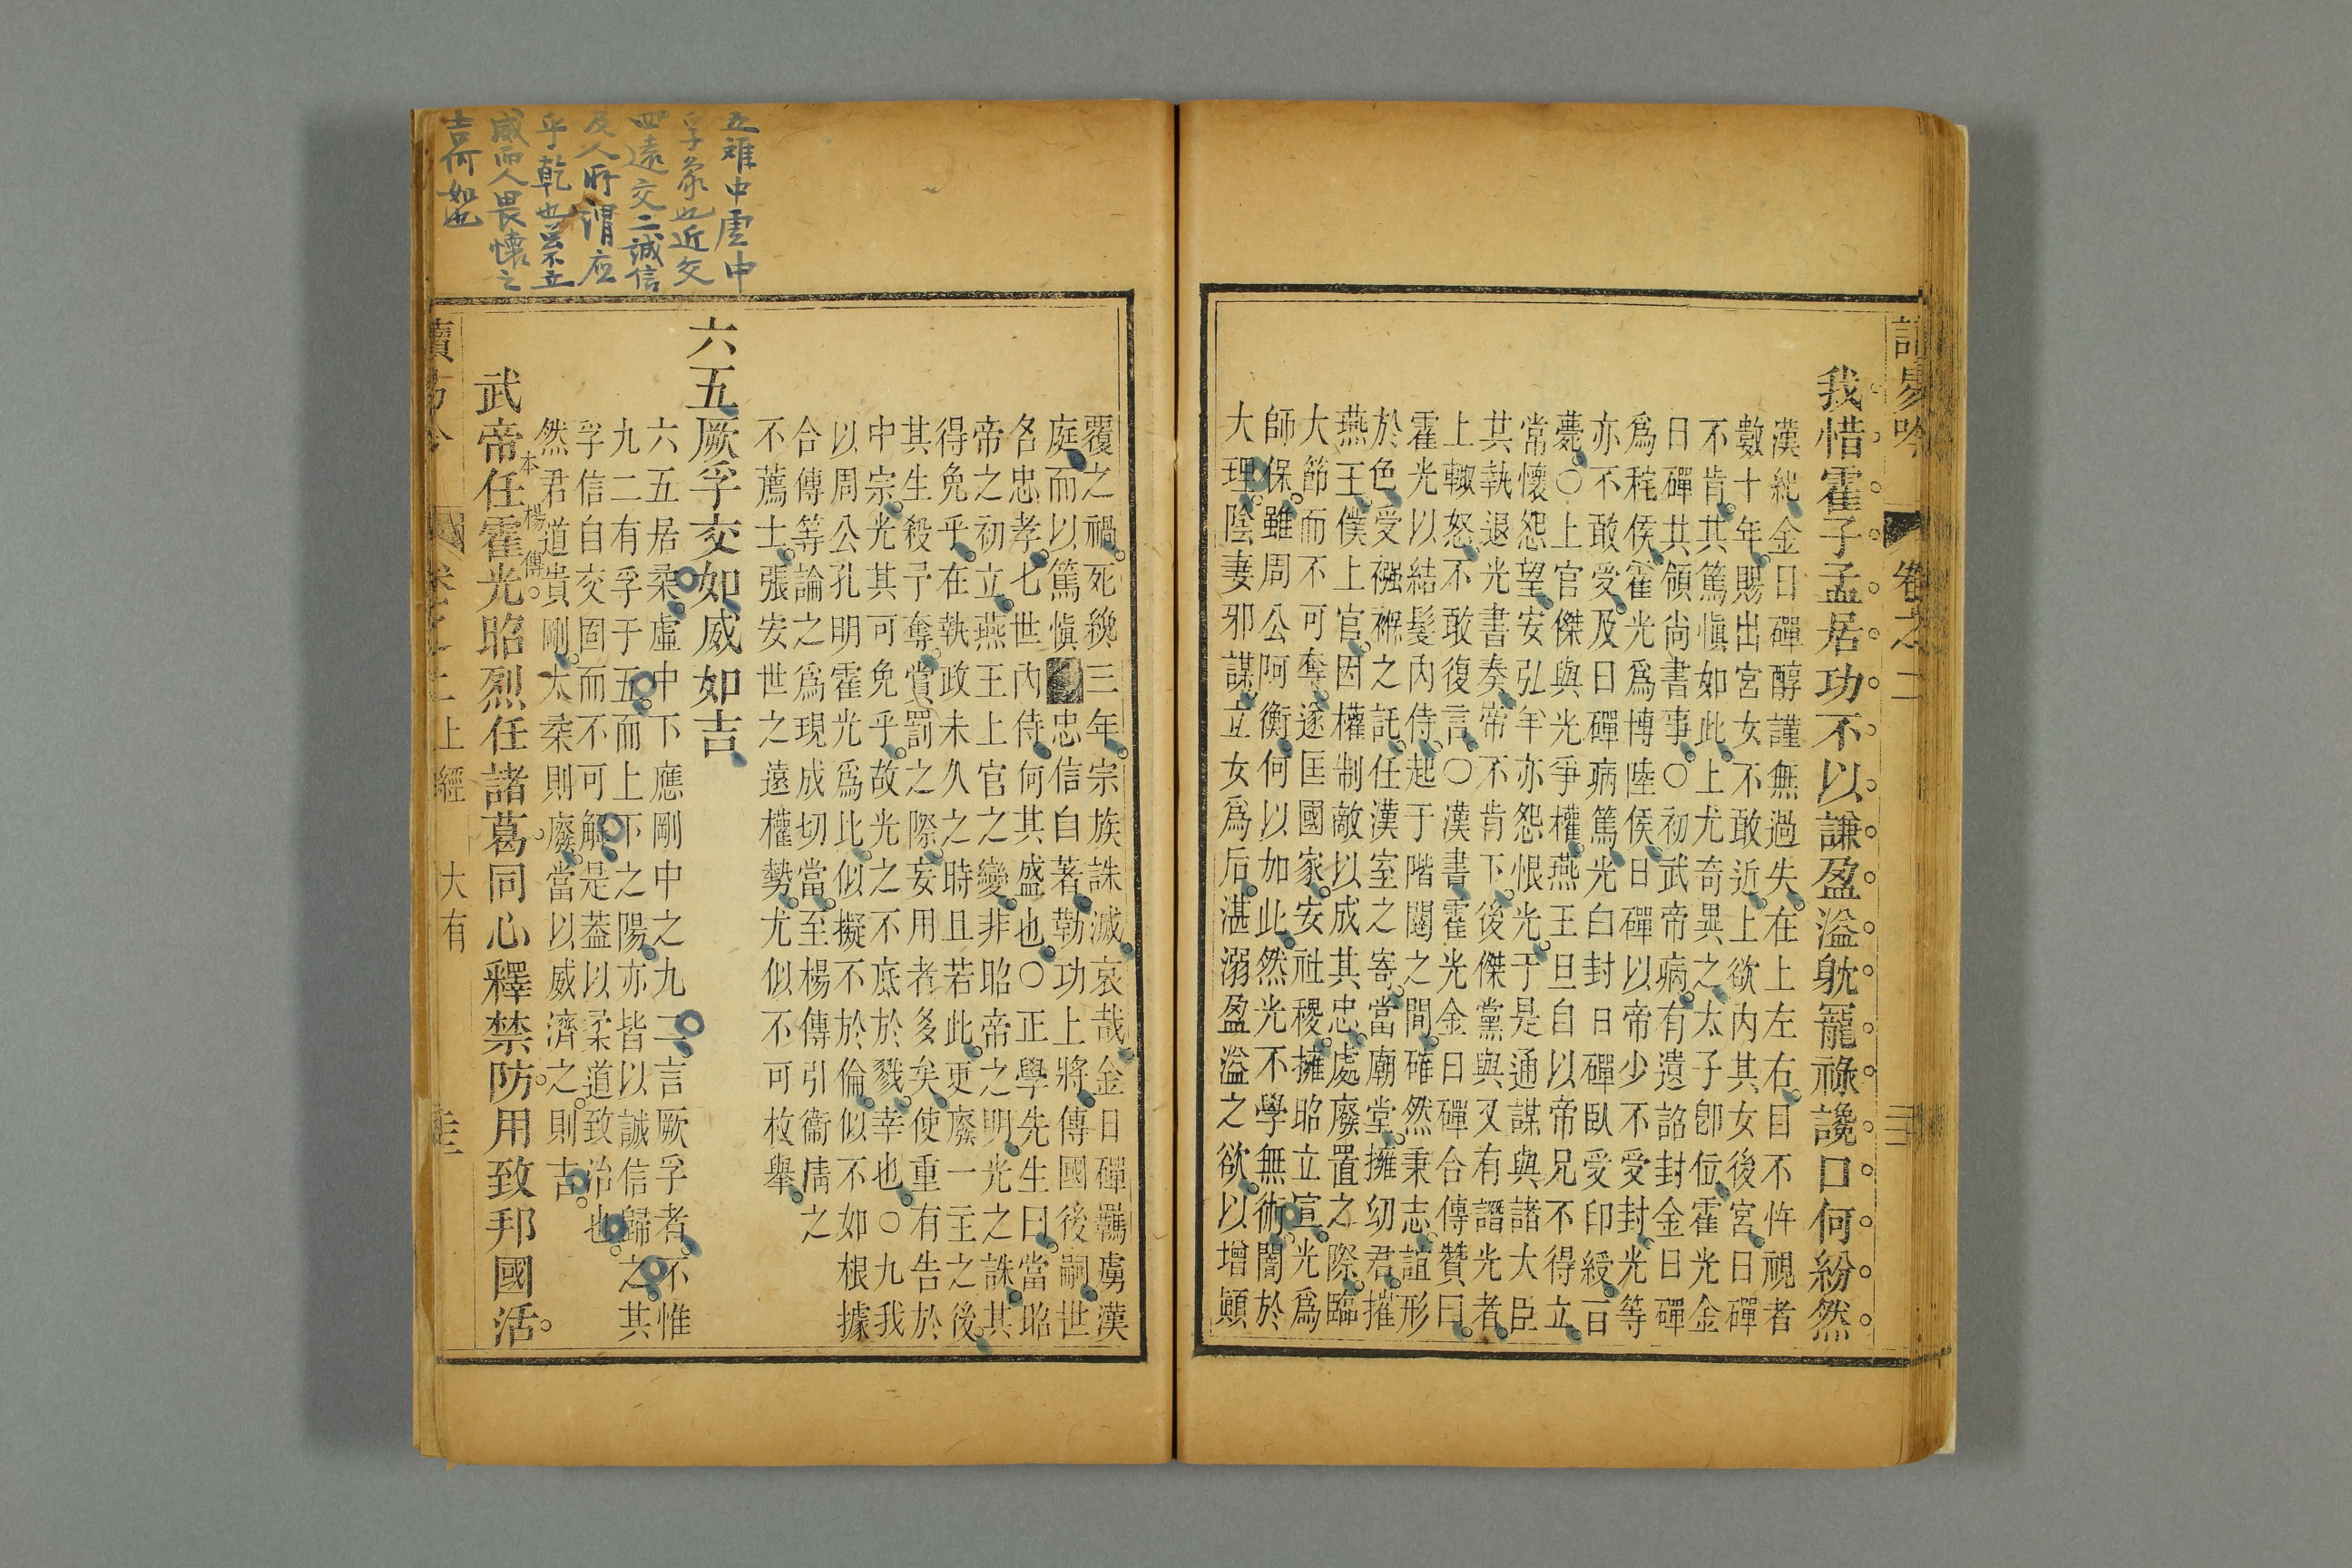 讀易吟 卷之二
我惜霍子孟居功不以謙盈溢躭寵祿讒口何紛然
漢紀金日磾醇謹無過失在上左右目不忤視者
數十年賜出宮女不敢近上欲內其女後宮日磾
不肯其篤慎如此上尤奇異之太子卽位霍光金
日磾共領尚書事○初武帝病有遺詔封金日磾
爲秺侯霍光爲博陸侯日磾以帝少不受封光等
亦不敢受及日磾病篤光白封日磾臥受印綬一日
薨○上官傑與光爭權燕王旦自以帝兄不得立
常懷怨望安弘羊亦怨恨光于是通謀與諸大臣
共執退光書奏帝不肯下後傑黨與又有譖光者
上輙怒不敢復言○漢書霍光金日磾合傳贊曰
霍光以結髮內侍起于階闥之間確然秉志誼形
於色受襁褓之託任漢室之寄當廟堂擁幼君摧
燕王僕上官因權制敵以成其忠處廢置之際臨
大節而不可奪遂匡國家安社稷擁昭立宣光爲
師保雖周公阿衡何以加此然光不學無術闇於
大理陰妻邪謀立女爲后湛溺盈溢之欲以增顚
覆之禍死纔三年宗族誅滅哀哉金日磾羈虜漢
庭而以篤愼忠信自著勒功上將傳國後嗣世
名忠孝七世內侍何其盛也○正學先生曰當昭
帝之初立燕王上官之變非昭帝之明光之誅其
得免乎在執政未久之時且若此更廢一主之後
其生殺予奪賞罰之際妄用者多矣使重有告於
中宗光其可免乎故光之不底於戮幸也○九我
以周公孔明霍光爲比似擬不於倫似不如根據
合傳等論之爲現成切當至楊傳引衞淸之
不薦士張安世之遠權勢尤似不可枚舉
六五厥孚交如威如吉
六五居柔虛中下應剛中之九二言厥孚者不惟
九二有孚于五而上下之陽亦皆以誠信歸之其
孚信自交固而不可解是葢以柔道致治也
然君道貴剛太柔則廢當以威濟之則吉
本楊傳
武帝任霍光昭烈任諸葛同心釋禁防用致邦國活
上經 大有
五雖中虛中
孚象也近交
四遠交二誠信
及人所謂應
乎乾也然不立
威而人畏懷之
吉何如也